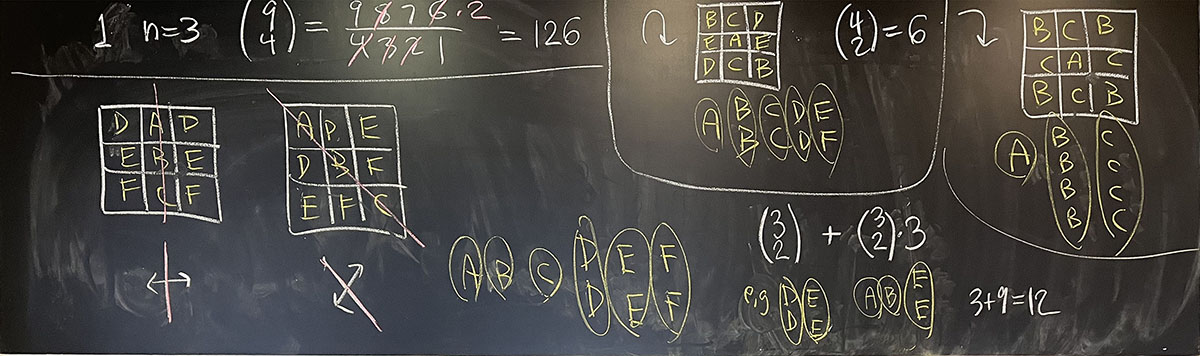 1 n=3 (9 4) = 9 8 7 6 · 2 / 4 3 2 1 = 126
D A D
E B E
F C F
A D E
D B F
E F C
A B C D E F
D E F
B C D
E A E
D C B
(4 2) = 6
A B C D E
B C D F
B C B
C A C
B C B
A B C
B C
B C
B C
(3 2) + (3 2) · 3
e.g. D E A B E
D E E
3+9=12